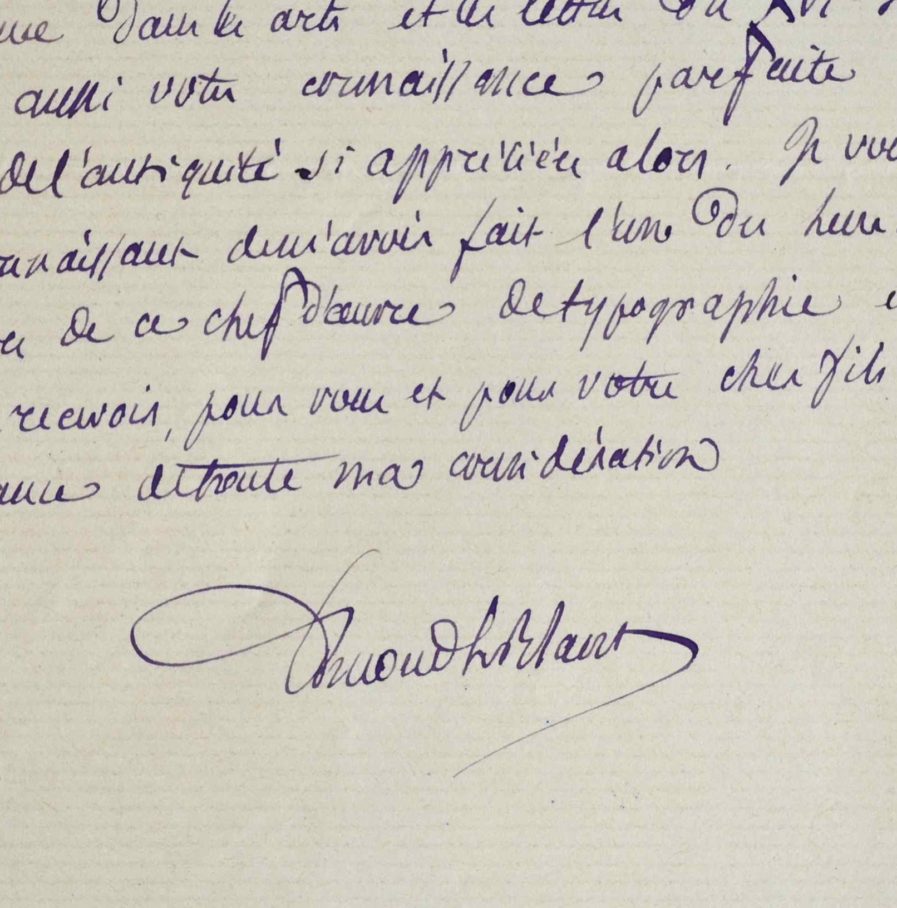 dans les arts et les lettres du XVIe
aussi votre connaissance parfaite
de l'antiquité si appréciée alors. Je vous
connaissant de m'avoir fait l'un des heure
de ce chef d'œuvre de typographie
recevoir, pour vous et pour votre cher fils
de toute ma considération
Edmond Le Blant